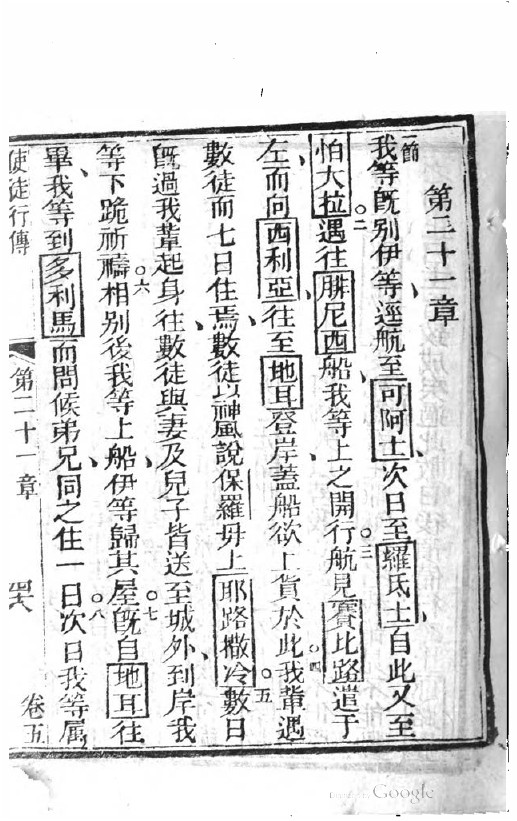 第二十一章
一節我等既別伊等、逕航至可阿士、次日至羅氐士、自此又至
怕大拉。二遇往腓尼西船、我等上之開行。三航見賽比路遣于
左、而向西利亞、往至地耳、登岸、蓋船欲上貨於此。四我輩遇
數徒而七日住焉、數徒以神風說保羅毋上耶路撒冷。五數日
既過我輩起身往、數徒與妻及兒子皆送至城外、到岸我
等下跪祈禱。六相別後我等上船、伊等歸其屋。七既自地耳往
畢、我等到多利馬、而問候弟兄、同之住一日。八次日我等屬
使徒行傳
第二十一章
四六
卷五
Digitized by Google